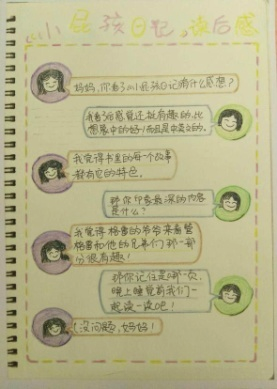 《小屁孩日记》读后感
妈妈,你看了小屁孩日记有什么感想?
我自己感觉还挺有趣的,比
想象中的好,而且是中英文的。
我觉得书里的每一个故事
都有它的特色。
那你印象最深的内容
是什么?
我觉得格雷的爷爷来看管
格雷和他的兄弟们那一部
分很有趣!
那你记住是哪一页,
晚上睡觉前我们一
起读一读吧!
没问题,妈妈!